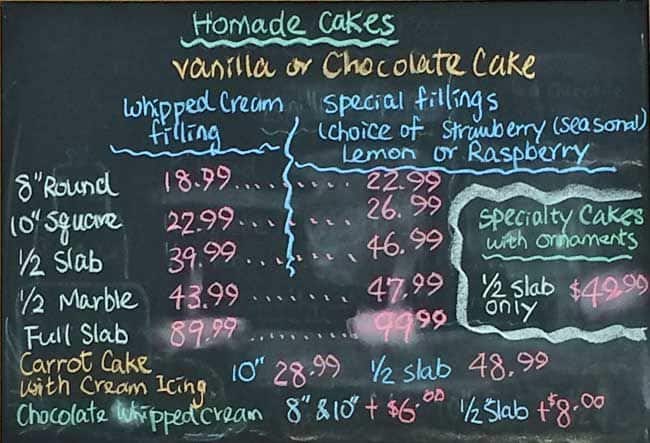 Homade Cakes
vanilla or Chocolate Cake
whipped Cream filling
special fillings
(choice of Strawberry (seasonal)
Lemon or Raspberry
8" Round 18.99..... 22.99
10" Square 22.99..... 26.99
1/2 Slab 39.99..... 46.99
1/2 Marble 43.99..... 47.99
Full Slab 89.99..... 99.99
Specialty Cakes
with ornaments
1/2 slab only $49.99
Carrot Cake
with Cream Icing 10" 28.99 1/2 slab 48.99
Chocolate Whipped Cream 8" & 10" + $6.00 1/2 Slab + $8.00